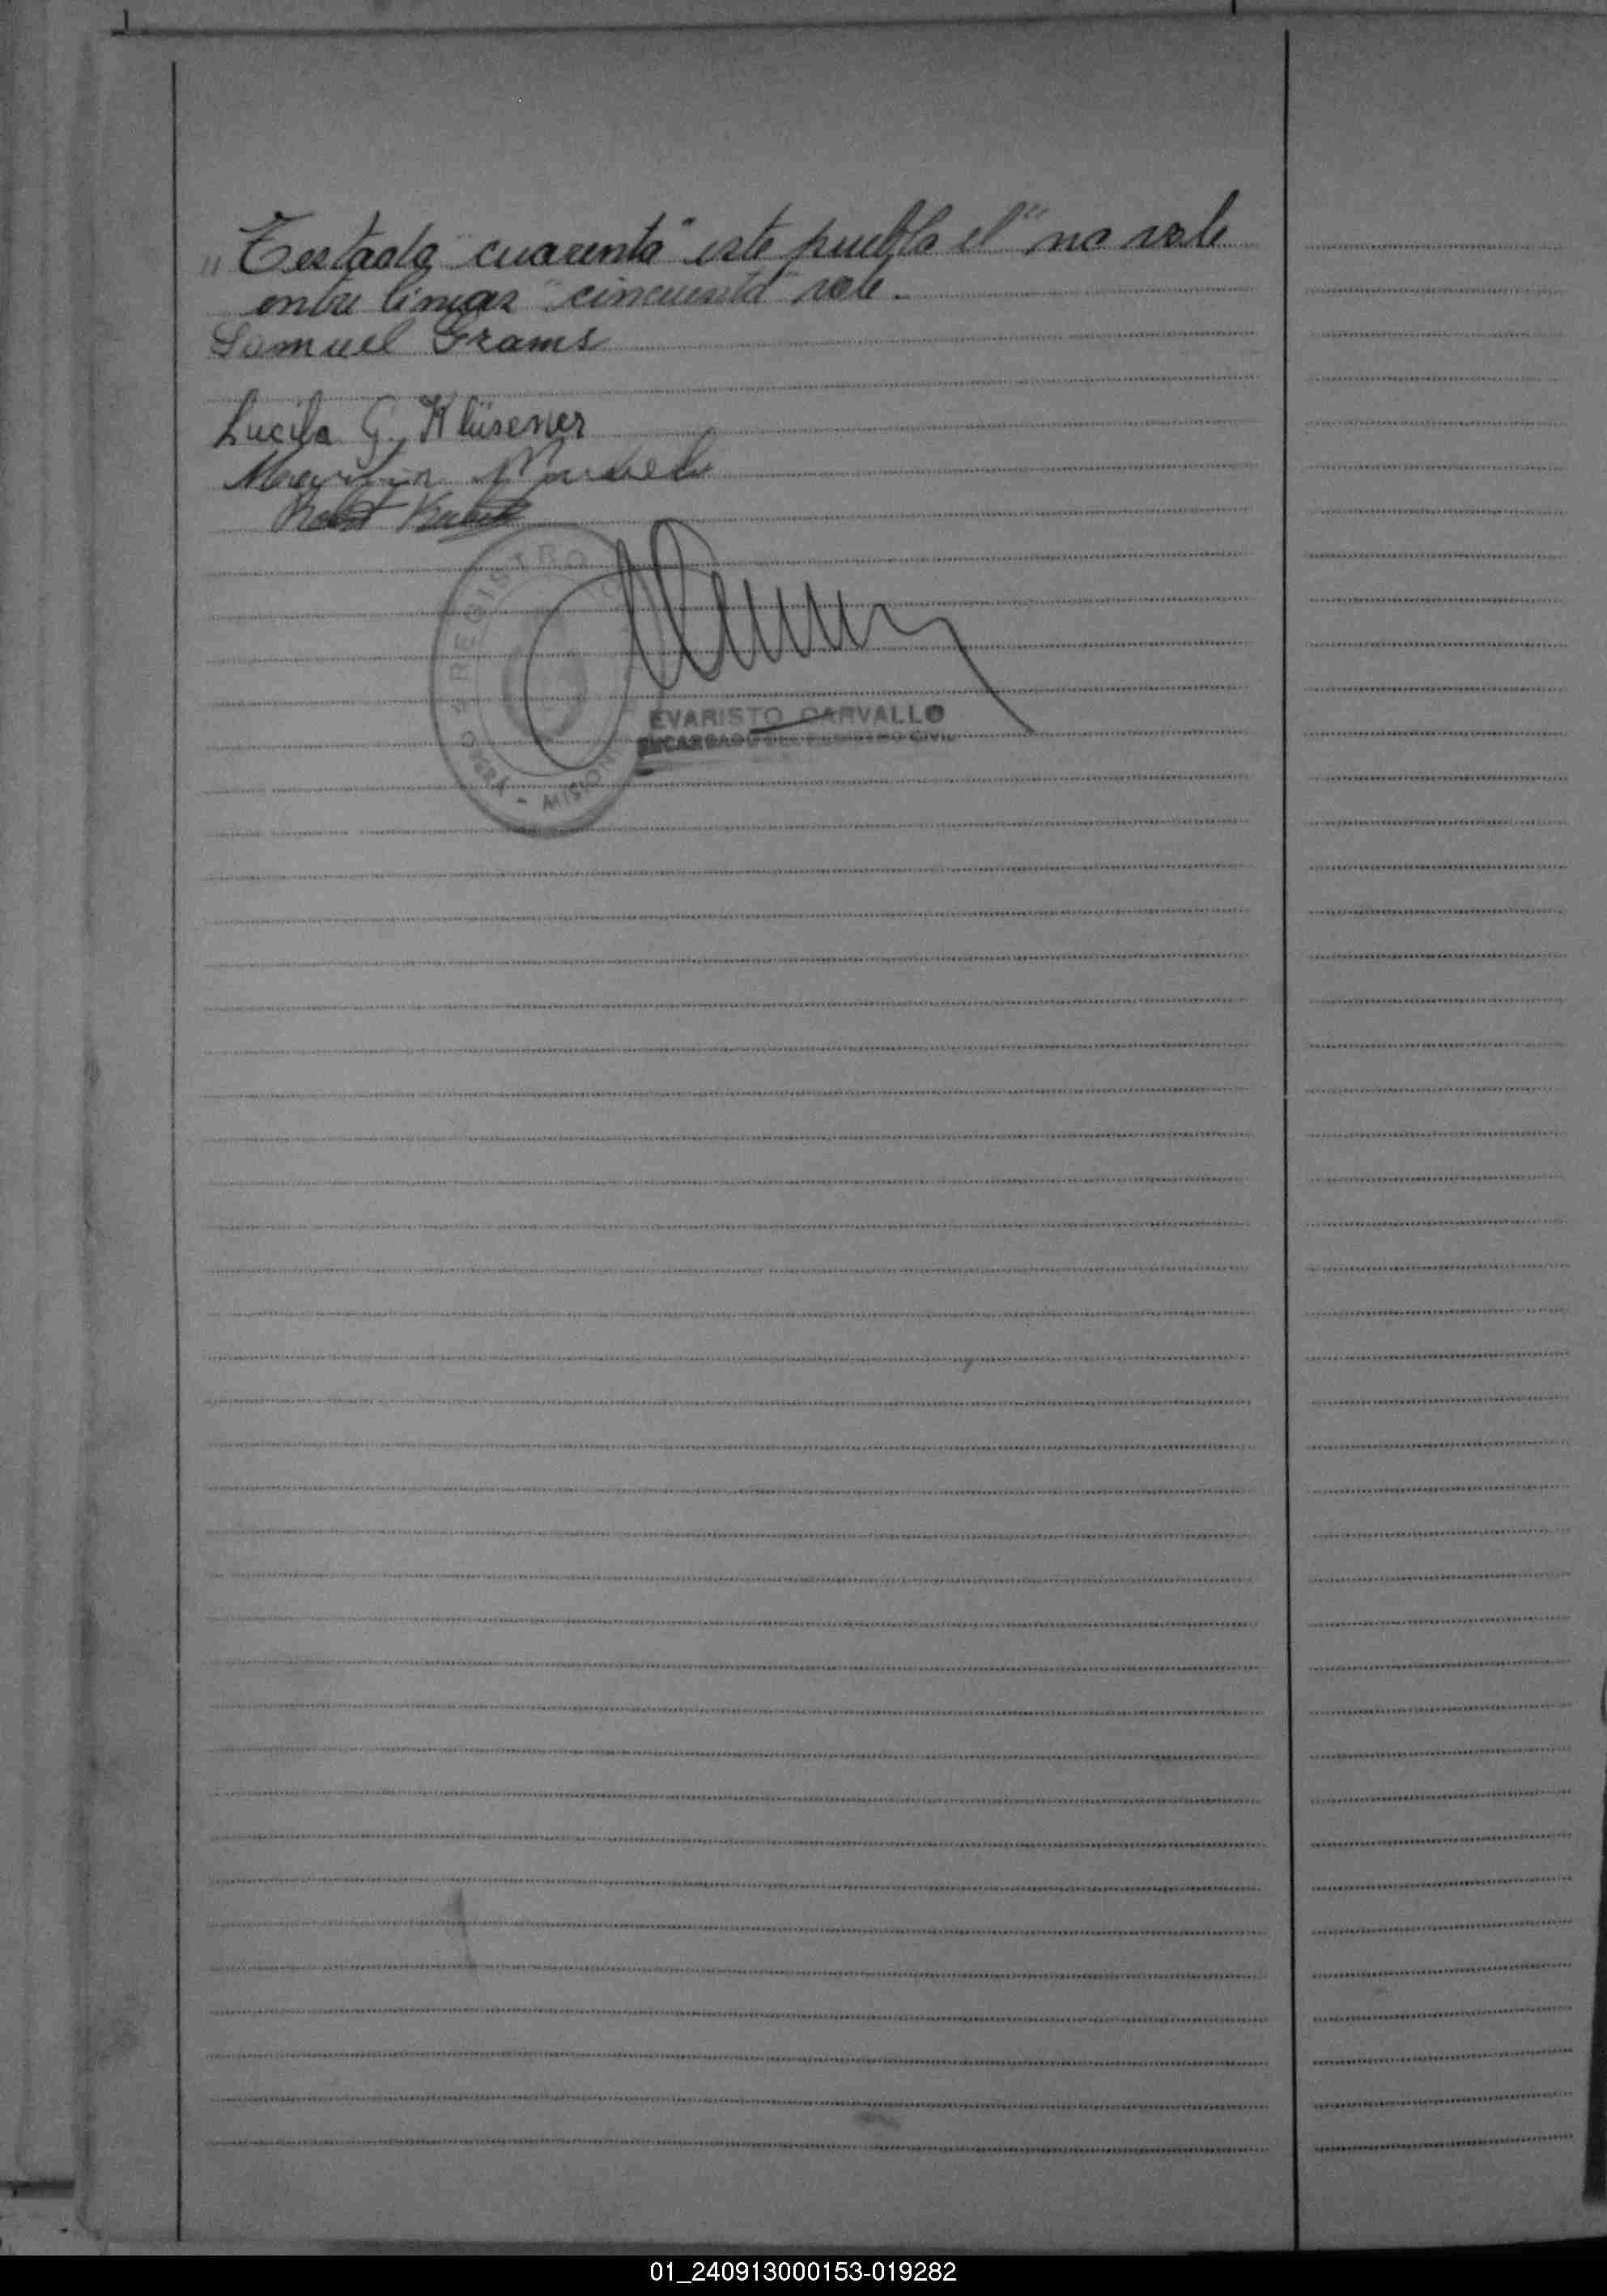 "Testado "cuarenta" este pueblo el" no vale
entre lineas "cincuenta" vale.
Samuel Grams
Lucila G. Klüsener
REGISTRO
MISIONES
EVARISTO CARVALLO
ENCARGADO DEL REGISTRO CIVIL
01_240913000153-019282